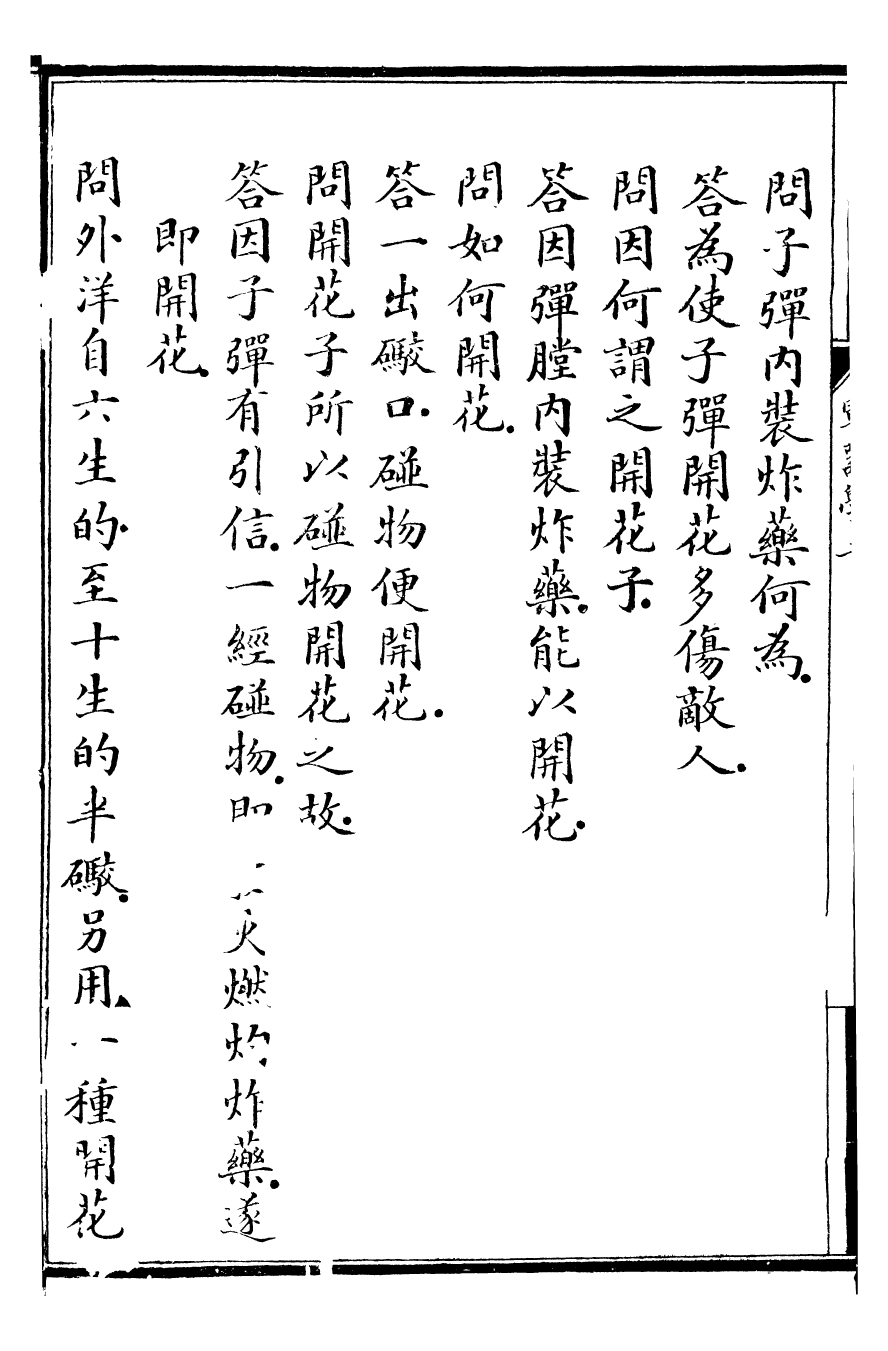 問子彈內裝炸藥何為.
答為使子彈開花多傷敵人.
問因何謂之開花子.
答因彈膛內裝炸藥.能以開花.
問如何開花.
答一出礮口.碰物便開花.
問開花子所以碰物開花之故.
答因子彈有引信.一經碰物.即火燃灼.炸藥.遂
即開花.
問外洋自六生的.至十生的半礮.另用.一種開花